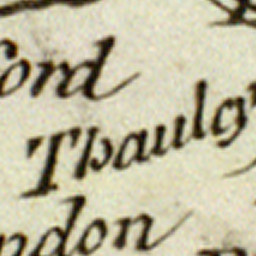 ford
Thauley
ndon